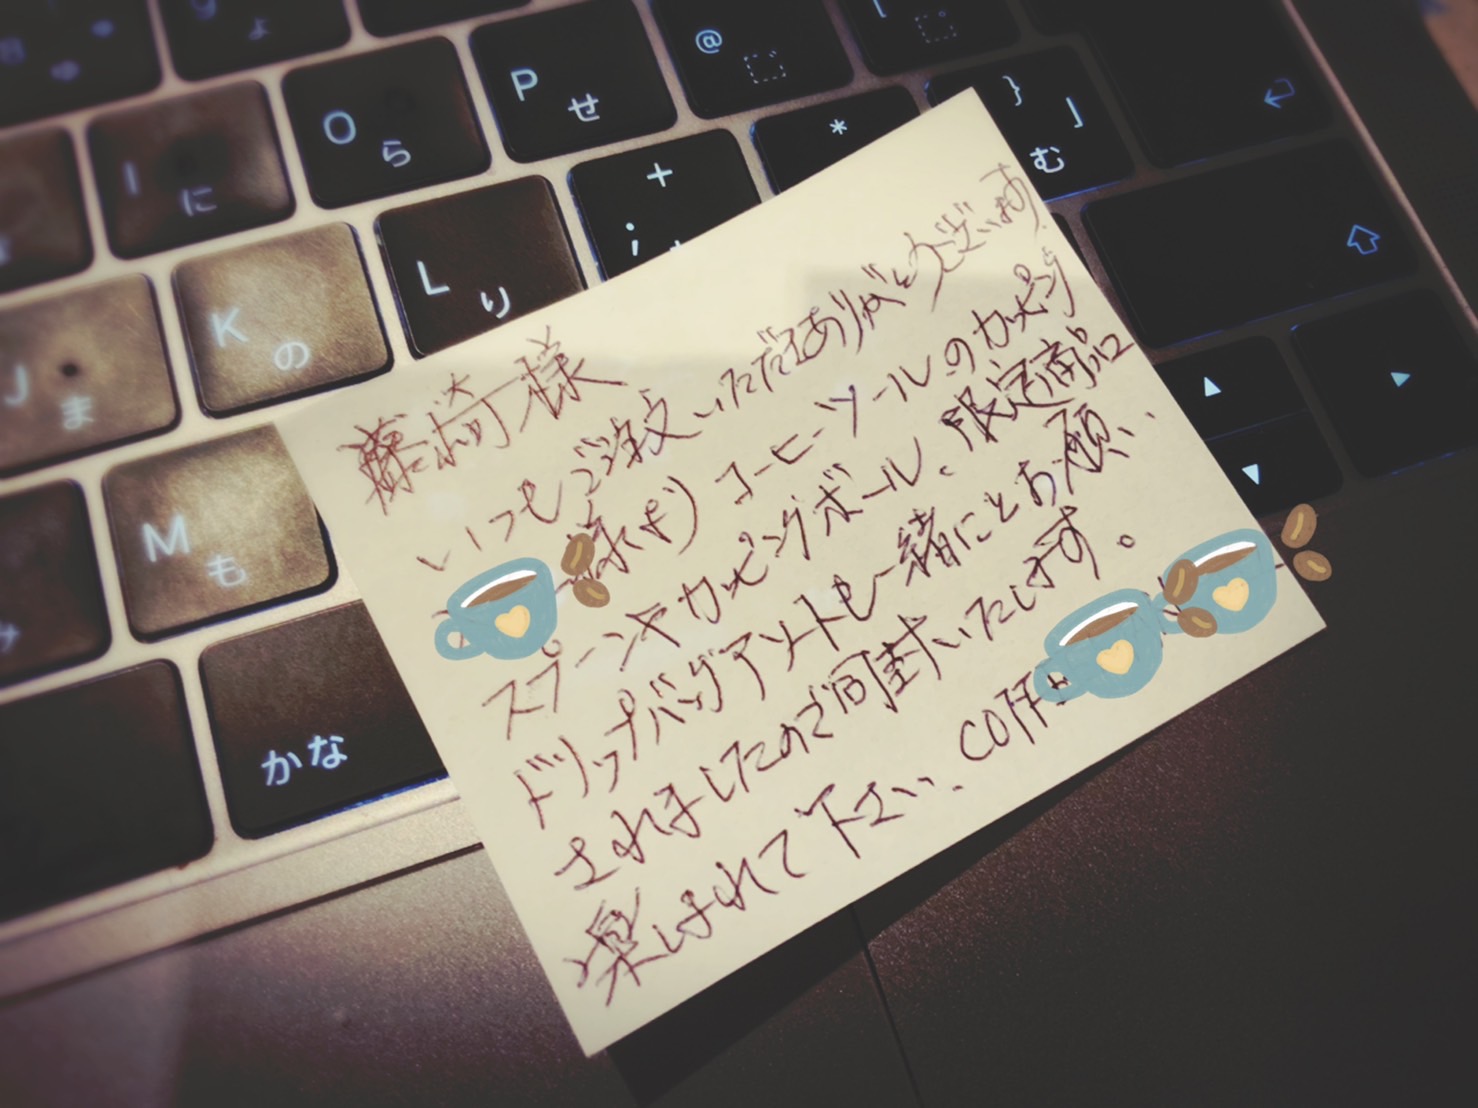 P
せ
@
O
ら
I
に
+
;
*
}
]
む
L
り
K
の
J
ま
M
も
かな
藤崎様
いつもご注文いただきありがとうございます
様より コーヒーツールのカッピング
スプーンやカッピングボール、限定商品
ドリップバッグアソートも一緒にとお願い
されましたので同封いたします。
楽しまれて下さい。COFF